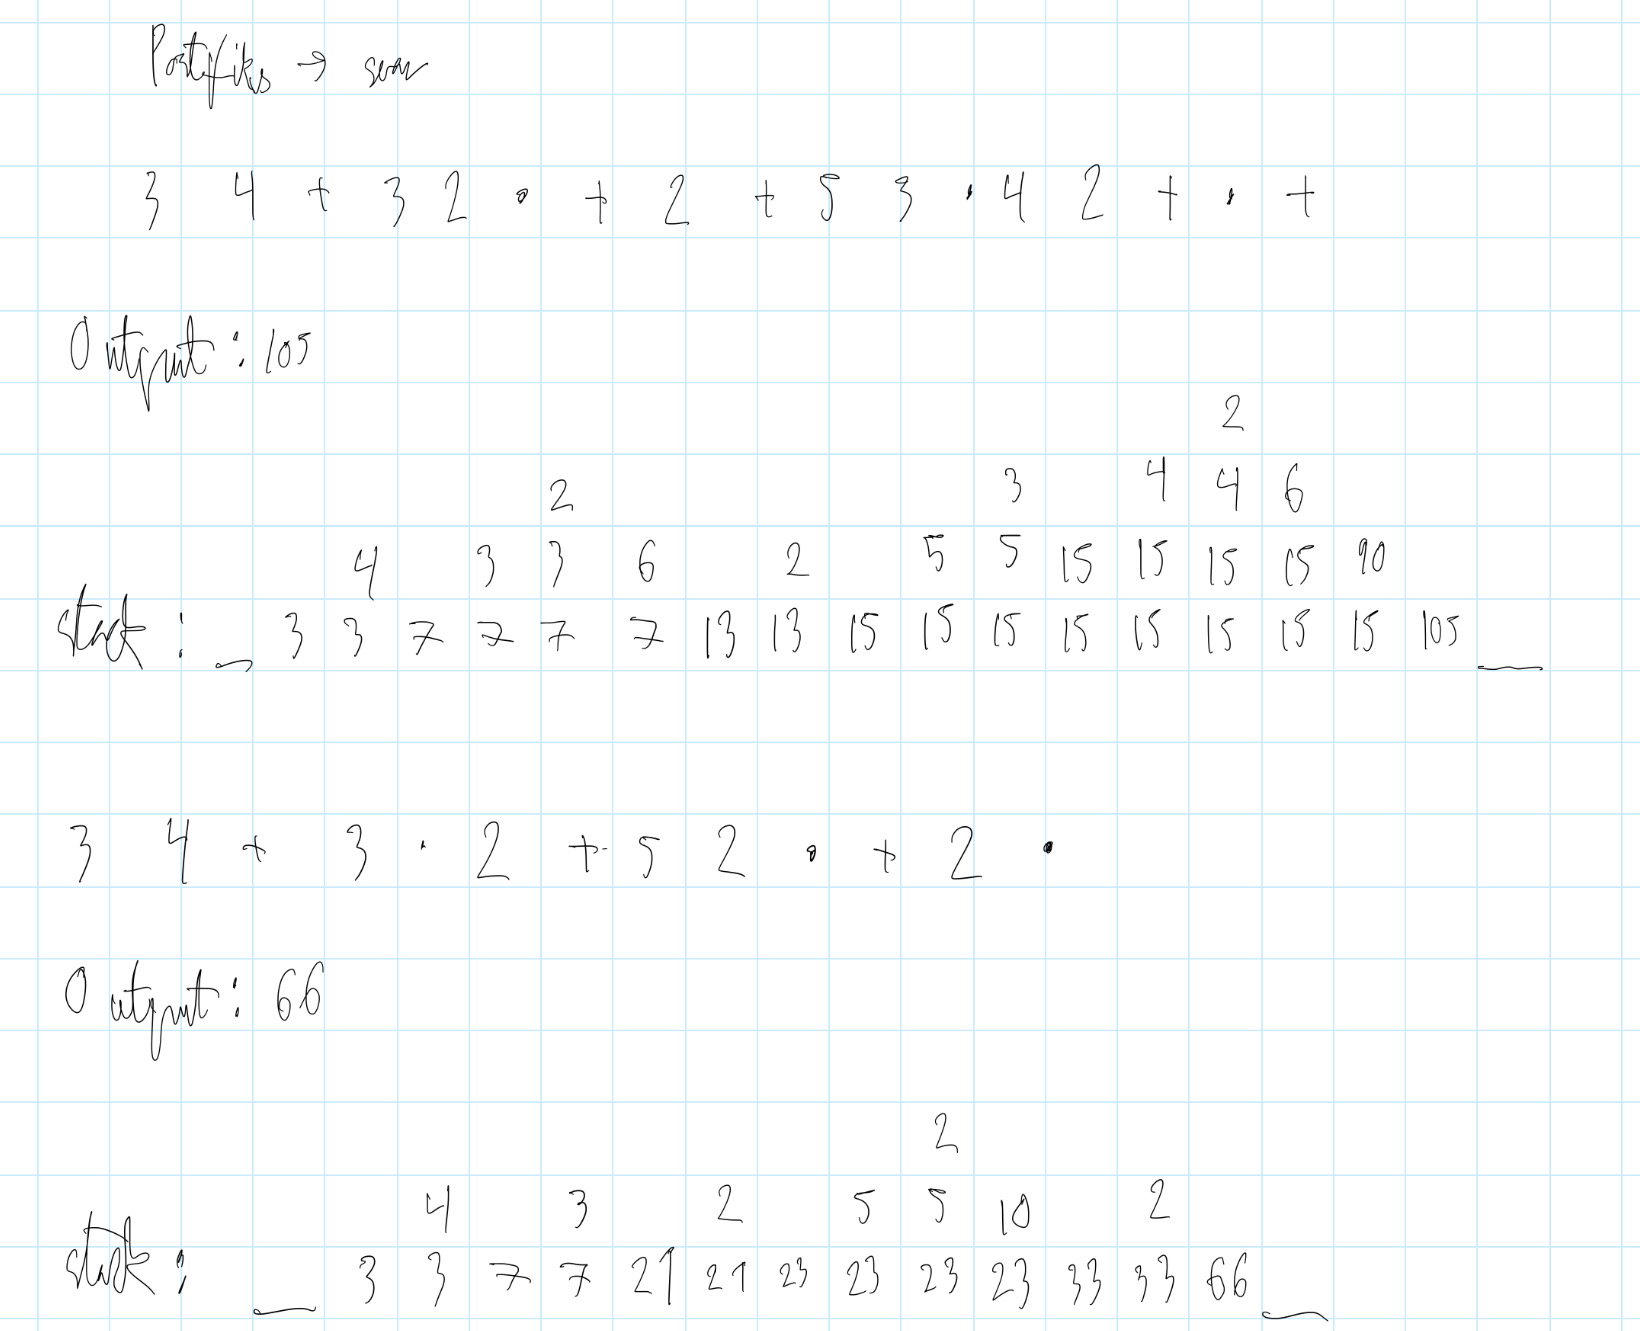 Postfiks → svar
3 4 + 3 2 · + 2 + 5 3 · 4 2 + · +
Output: 105
2
2 3 4 4 6
4 3 3 6 2 5 5 15 15 15 15 90
stack: _ 3 3 7 7 7 7 13 13 15 15 15 15 15 15 15 15 105 _
3 4 + 3 · 2 + 5 2 · + 2 ·
Output: 66
2
4 3 2 5 5 10 2
stack: _ 3 3 7 7 21 21 23 23 23 23 33 33 66 _